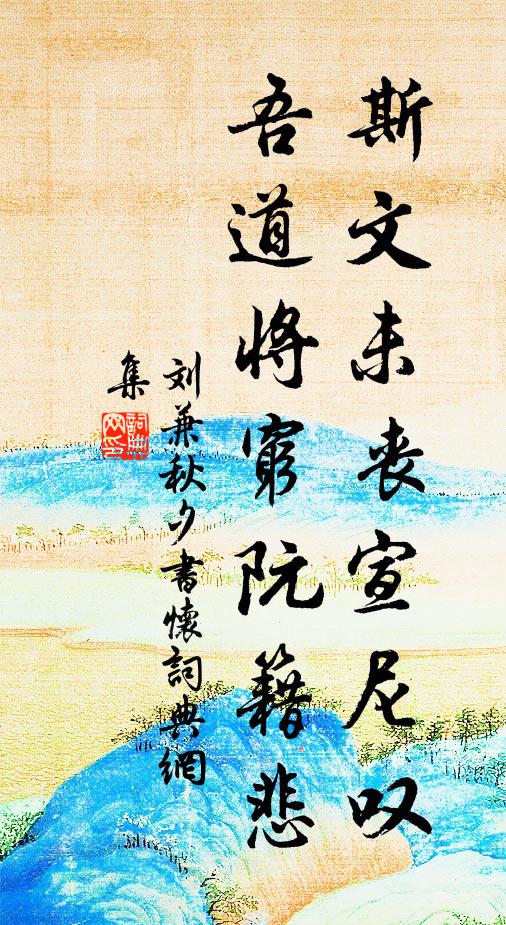 斯文未丧宣尼叹
吾道将穷阮籍悲
刘兼秋夕书怀詞典網
集
詞典網印